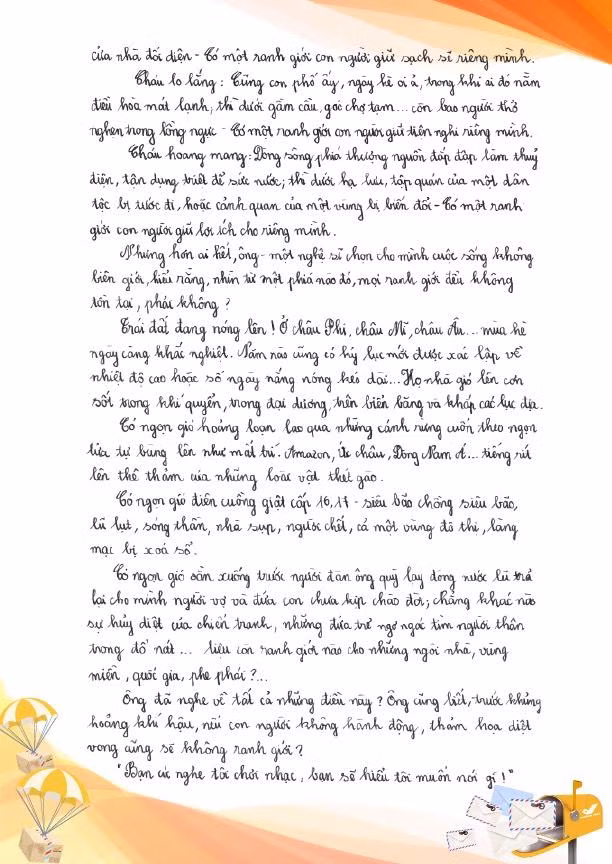 cửa nhà đối diện - Có một ranh giới con người giữ sạch sẽ riêng mình.
Cháu lo lắng: Cũng con phố ấy, ngày hè oi ả, trong khi ai đó nằm
điều hòa mát lạnh; thì dưới gầm cầu, góc chợ tạm... còn bao người thở
nghẹn trong lồng ngực - Có một ranh giới con người giữ tiện nghi riêng mình.
Cháu hoang mang: Dòng sông phía thượng nguồn đắp đập làm thuỷ
điện, tận dụng triệt để sức nước; thì dưới hạ lưu, tập quán của một dân
tộc bị tước đi, hoặc cảnh quan của một vùng bị biến đổi - Có một ranh
giới con người giữ lợi ích cho riêng mình.
Nhưng hơn ai hết, ông - một nghệ sĩ chọn cho mình cuộc sống không
biên giới, hiểu rằng, nhìn từ một phía nào đó, mọi ranh giới đều không
tồn tại, phải không?
Trái đất đang nóng lên! Ở châu Phi, châu Mĩ, châu Âu... mùa hè
ngày càng khắc nghiệt. Năm nào cũng có kỷ lục mới được xác lập về
nhiệt độ cao hoặc số ngày nắng nóng kéo dài... Họ nhà gió lên cơn
sốt trong khí quyển, trong đại dương, trên biển băng và khắp các lục địa.
Có ngọn gió hoảng loạn lao qua những cánh rừng cuốn theo ngọn
lửa tự bùng lên như mất trí. Amazon, Úc châu, Đông Nam Á... tiếng rít
lên thê thảm của những loài vật thét gào.
Có ngọn gió điên cuồng giật cấp 16,17 - siêu bão chồng siêu bão,
lũ lụt, sóng thần, nhà sụp, người chết, cả một vùng đô thị, làng
mạc bị xoá sổ.
Có ngọn gió sằn xuống trước người đàn ông quỳ lạy dòng nước lũ trả
lại cho mình người vợ và đứa con chưa kịp chào đời; chẳng khác nào
sự hủy diệt của chiến tranh, những đứa trẻ ngơ ngác tìm người thân
trong đổ nát... liệu còn ranh giới nào cho những ngôi nhà, vùng
miền, quốc gia, phe phái?...
Ông đã nghe về tất cả những điều này? Ông cũng biết, trước khủng
hoảng khí hậu, nếu con người không hành động, thảm họa diệt
vong cũng sẽ không ranh giới?
"Bạn cứ nghe tôi chơi nhạc, bạn sẽ hiểu tôi muốn nói gì!"